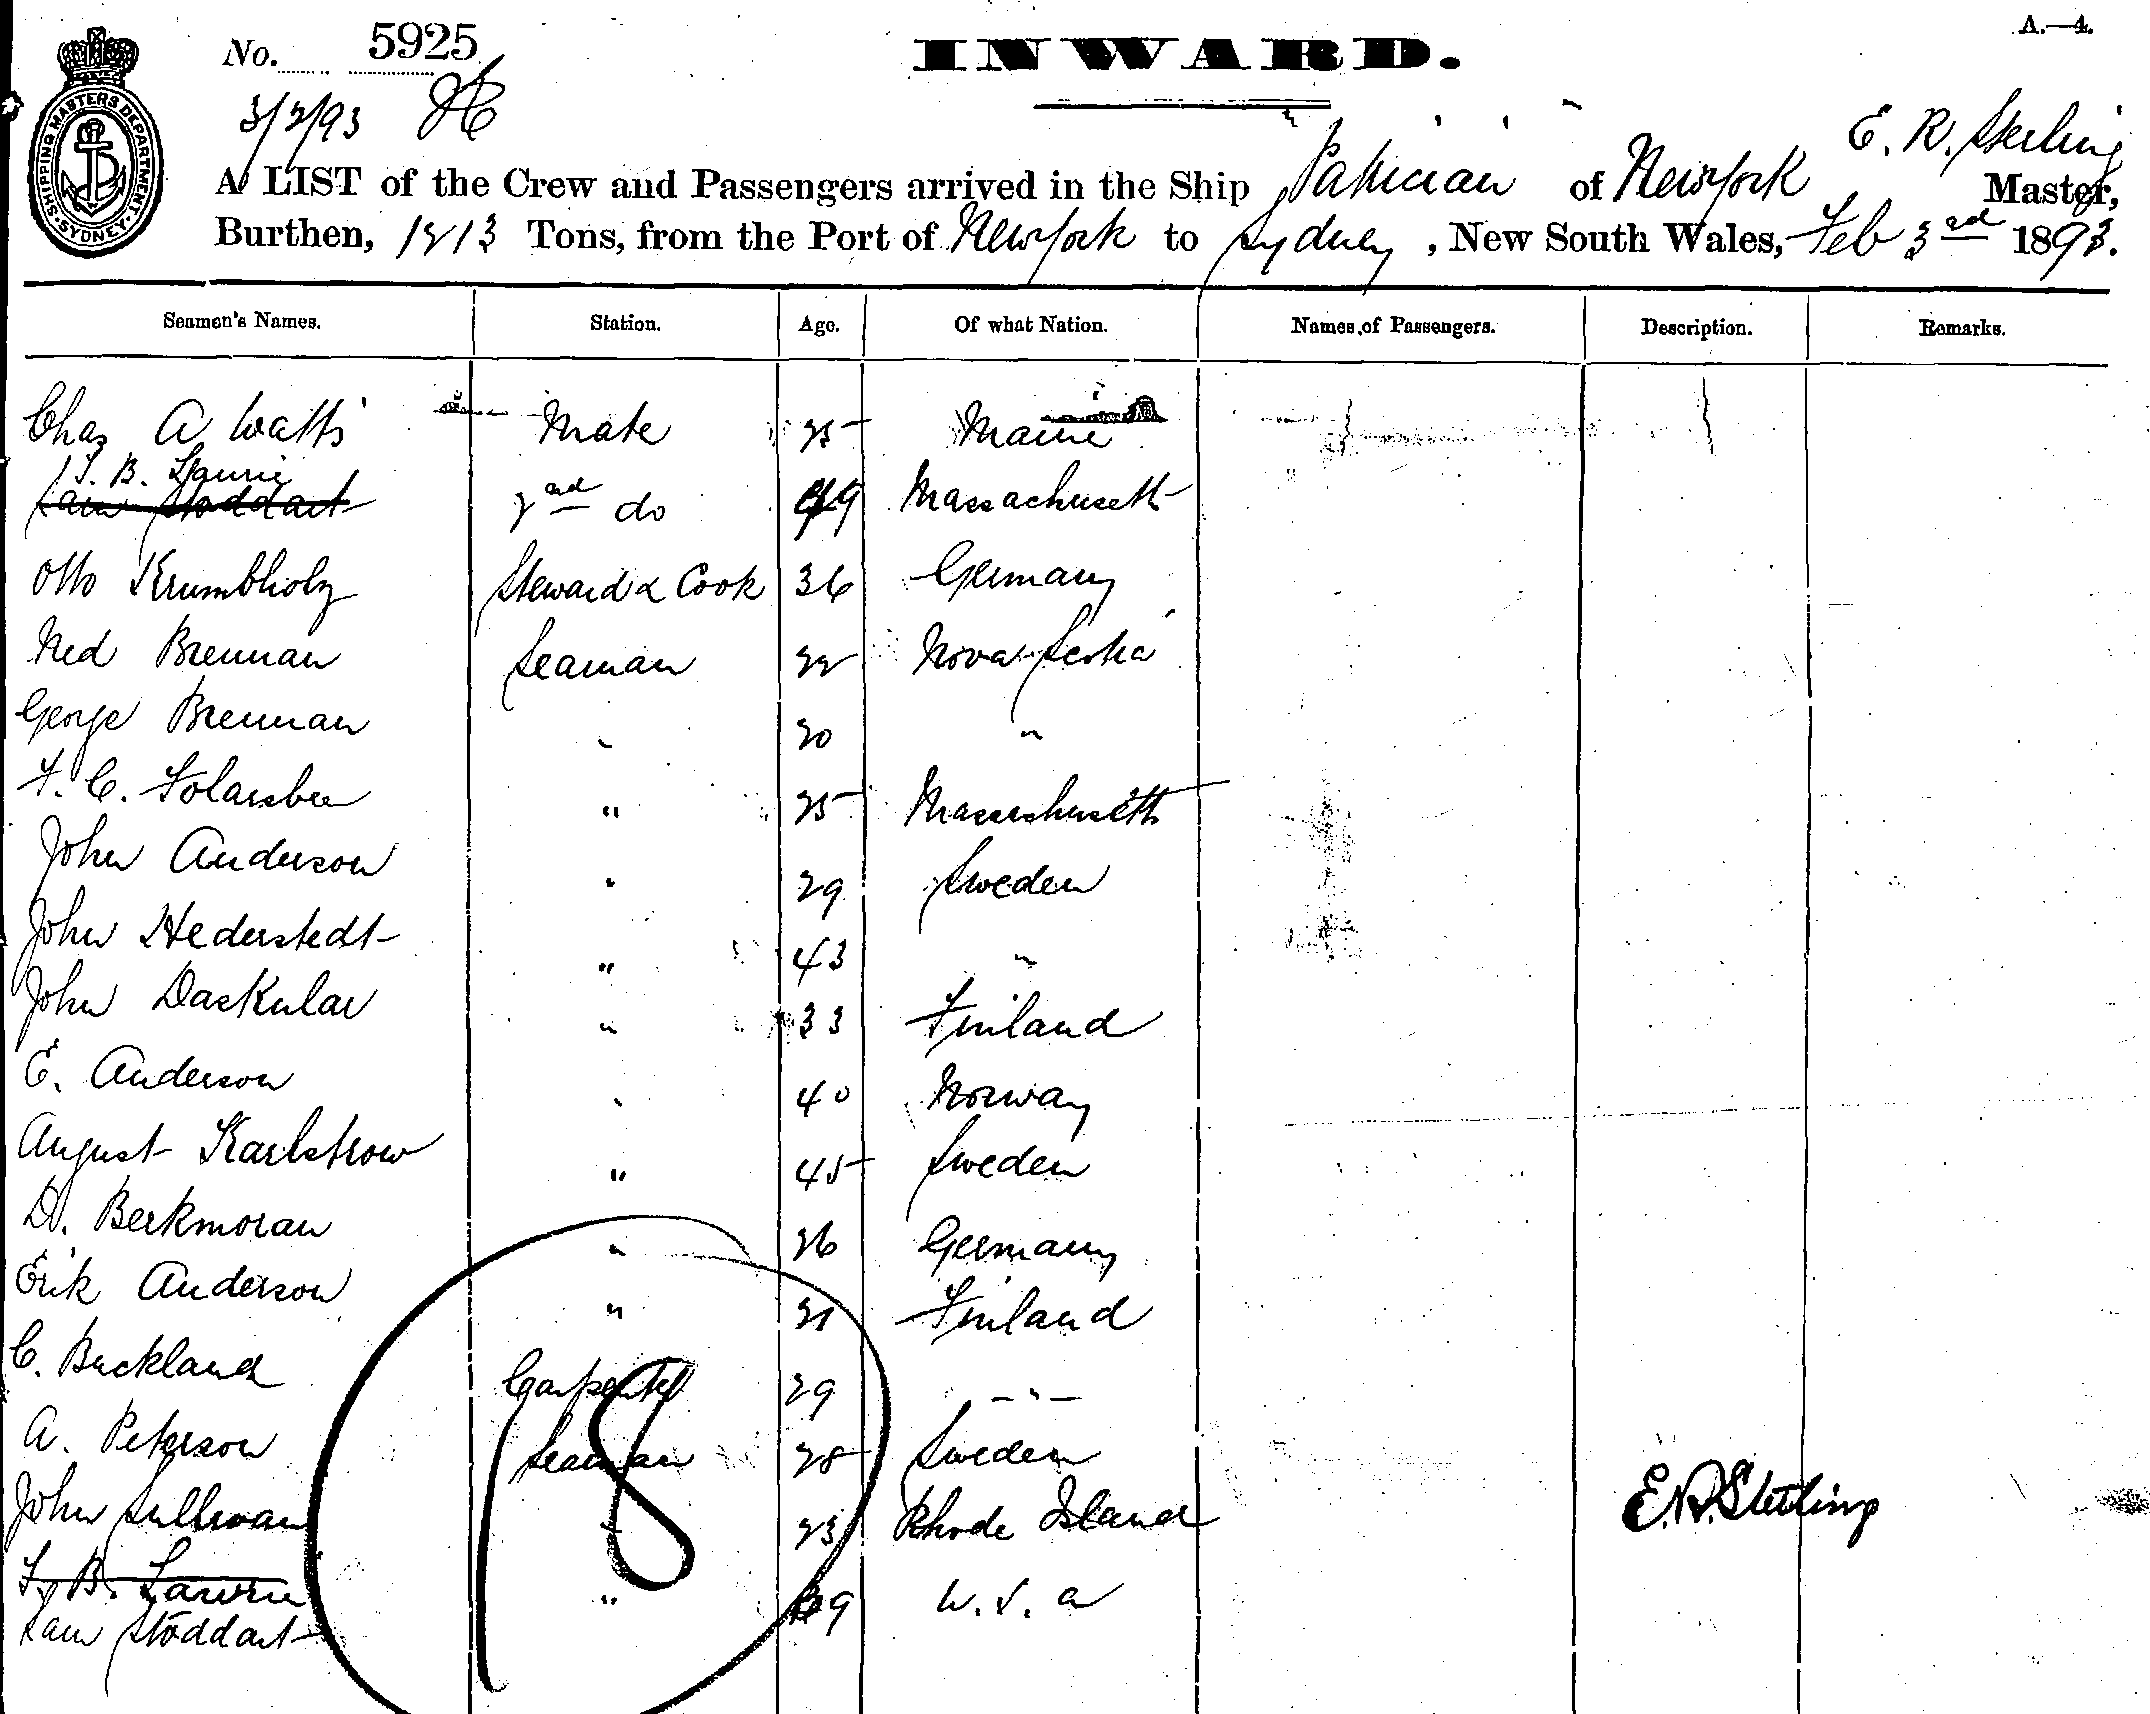 A.—4.
No. 5925
INWARD.
3/2/93
SHIPPING MASTERS DEPARTMENT
SYDNEY
E. R. Sterling
A LIST of the Crew and Passengers arrived in the Ship Patrician of Newyork Master,
Burthen, 1213 Tons, from the Port of Newyork to Sydney, New South Wales, Feb 3rd 1893.
Seamen's Names. Station. Age. Of what Nation. Names of Passengers. Description. Remarks.
Chas A Watts Mate 25 Maine
T. B. Lawrie
Sam Stoddart 2nd do 49 Massachusetts
Otto Krumbholz Steward & Cook 36 Germany
Ned Brennan Seaman 22 Nova Scotia
George Brennan " 20 "
F. C. Folansbee " 25 Massachusetts
John Anderson " 29 Sweden
John Hederstedt " 43 "
John Daskular " 33 Finland
E. Anderson " 40 Norway
August Karlstrow " 45 Sweden
D. Beekmoran " 26 Germany
Erik Anderson " 21 Finland
C. Buckland Carpenter 29 "
A. Peterson Seaman 28 Sweden
John Sullivan " 23 Rhode Island
E. R. Sterling
T. B. Lawrie " 29 U. S. A
Sam Stoddart
18